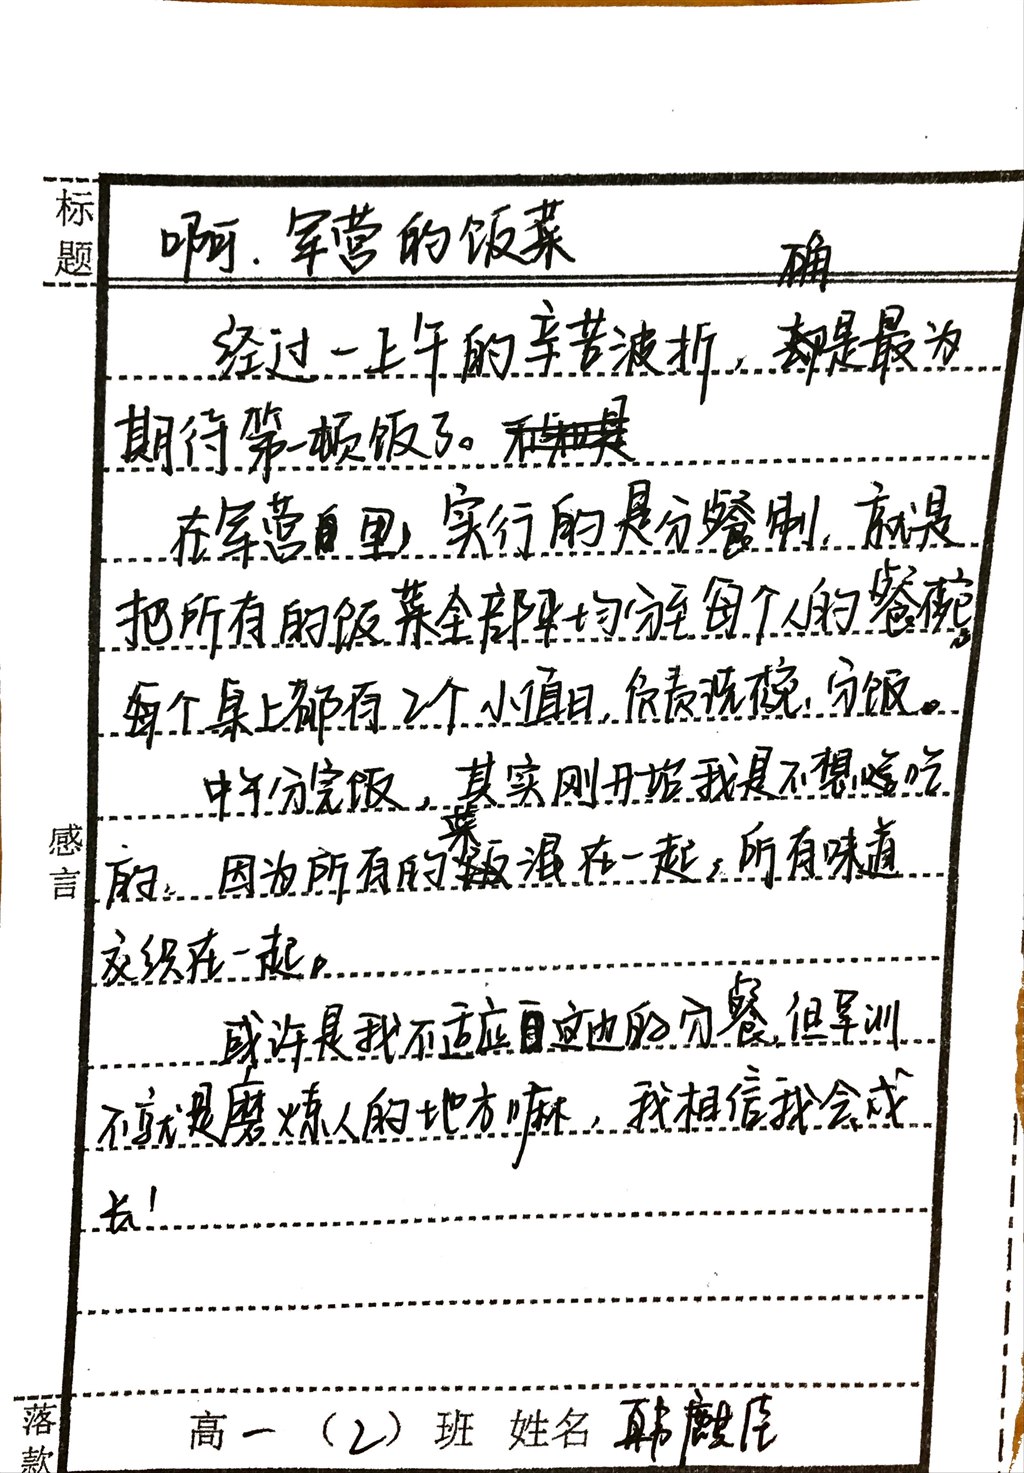 标题
啊.军营的饭菜
确
经过一上午的辛苦波折，却是最为
期待第一顿饭了。
在军营里，实行的是分餐制，就是
把所有的饭菜全部平均分至每个人的餐碗。
每个桌上都有2个小值日，负责洗碗，分饭。
中午分完饭，其实刚开始我是不想啥吃
的，因为所有的菜混在一起，所有味道
交织在一起。
或许是我不适应这边的分餐，但军训
不就是磨炼人的地方嘛，我相信我会成
长！
感言
落款
高一（2）班 姓名 韩麒